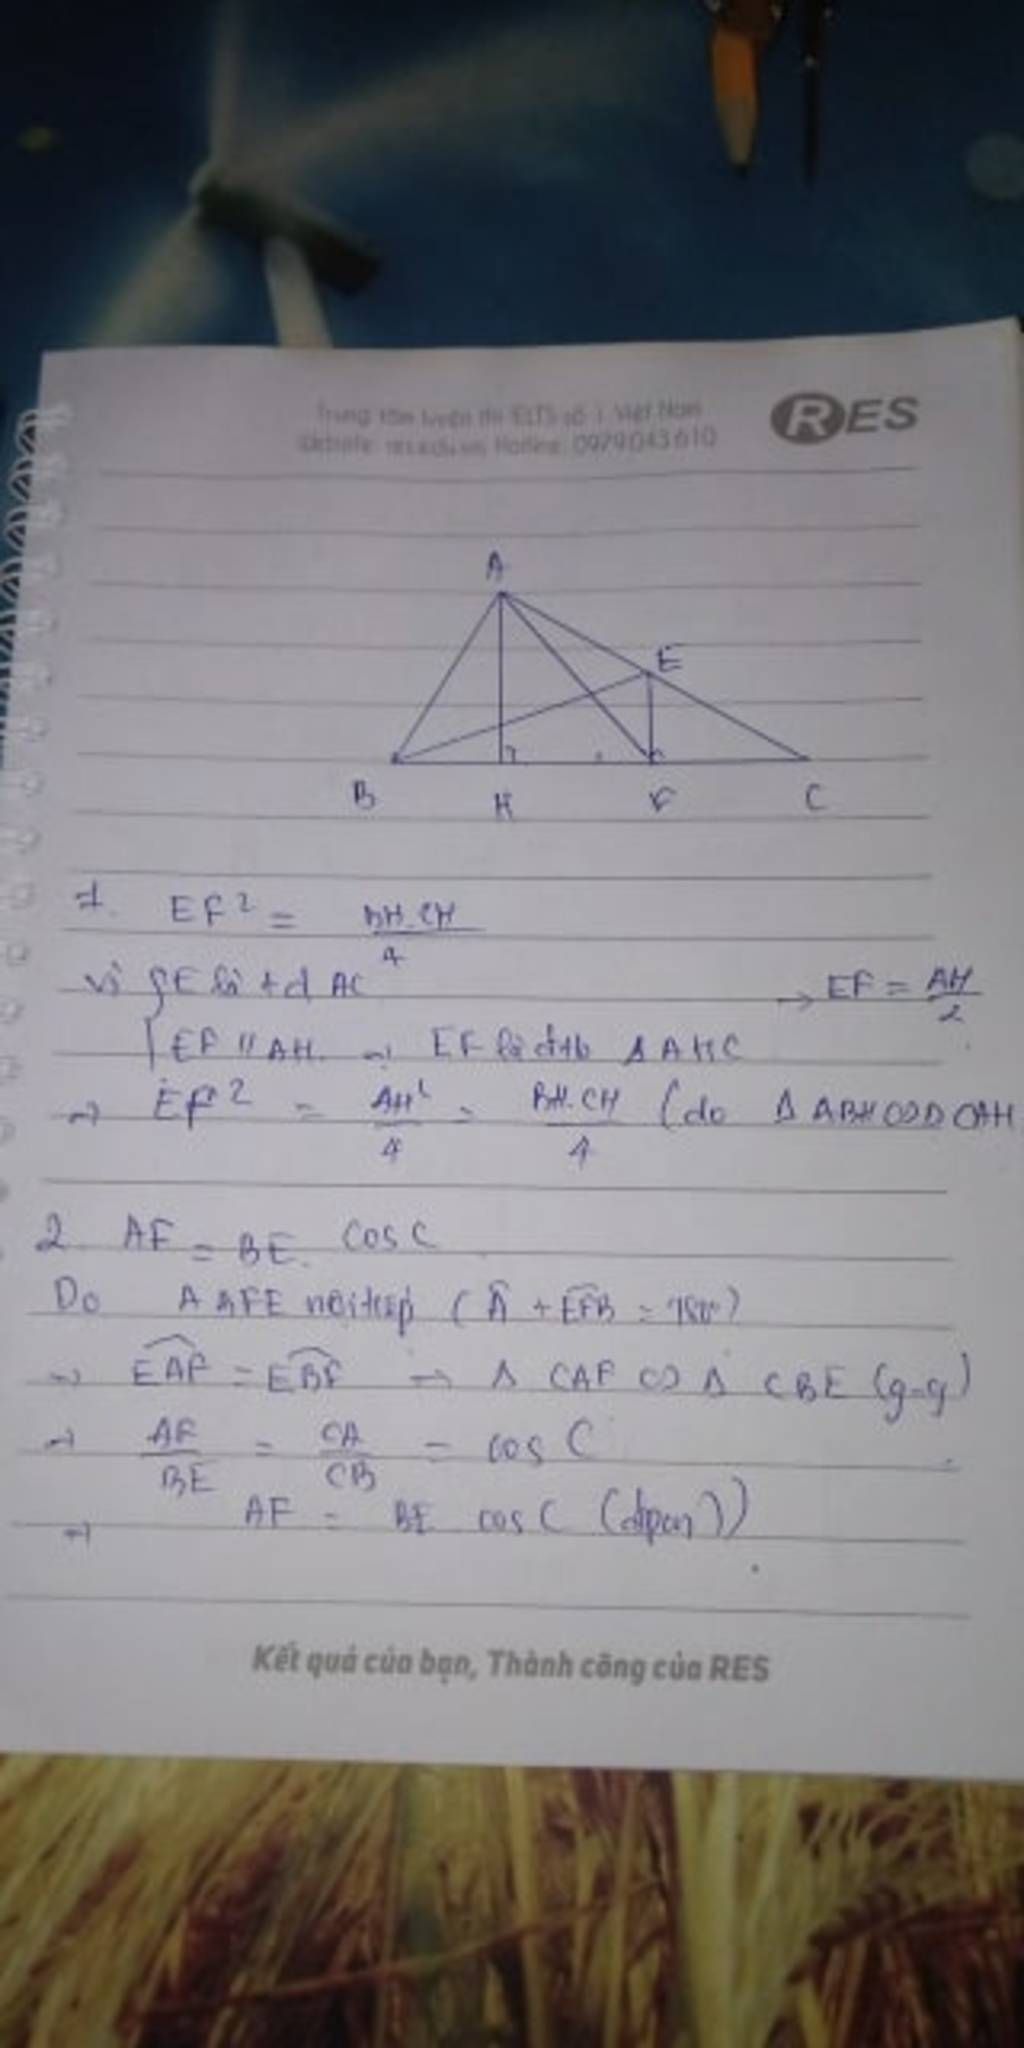 Trung tâm luyện thi IELTS số 1 Việt Nam
Website: res.edu.vn Hotline: 0929043610
RES
A
E
B H F C
1. EF² = BH.CH / 4
Vì { E là tđ AC → EF = AH / 2
EF // AH. → EF là đtb Δ AHC
→ EF² = AH² / 4 = BH.CH / 4 (do Δ ABH ∽ Δ CAH
2 AF = BE. cos C
Do ABFE nội tiếp (Â + EFB = 180°)
→ EAF = EBF → Δ CAF ∽ Δ CBE (g-g)
→ AF / BE = CA / CB = cos C
→ AF = BE cos C (đpcm)
Kết quả của bạn, Thành công của RES